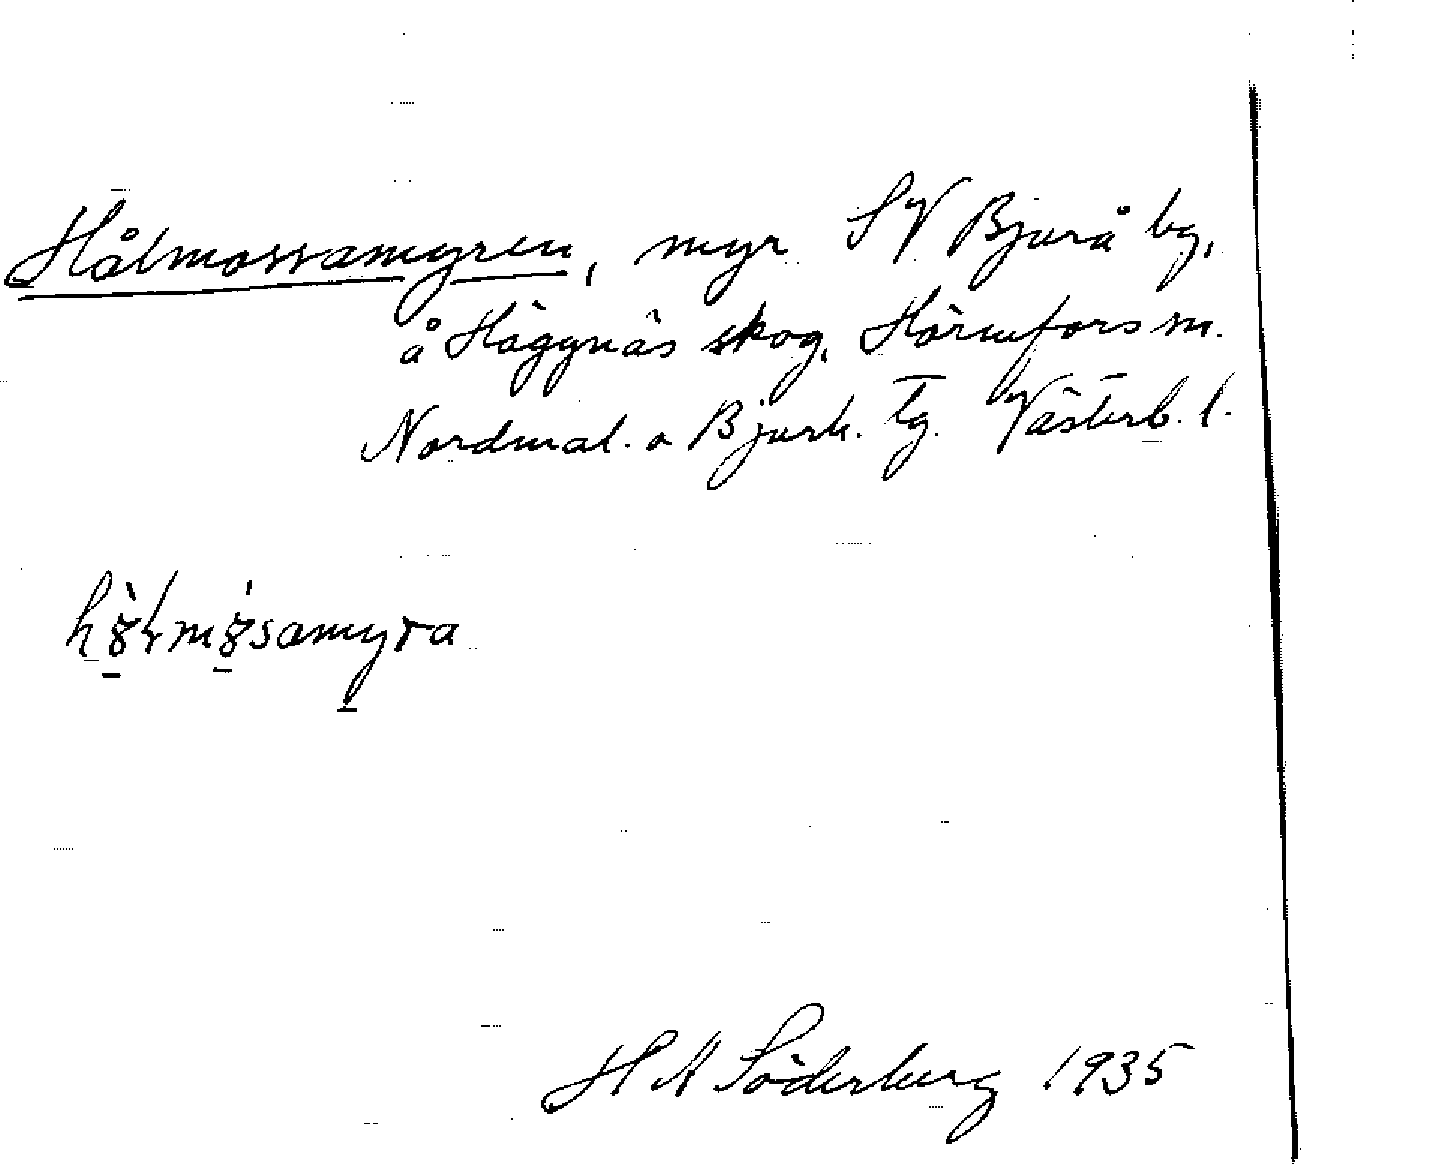 Hålmossamyren, myr SV Bjurå by,
å Häggnäs skog, Hörnefors sn.
Nordmal. o Bjurh. tg. Västerb. l.
H A Söderberg 1935